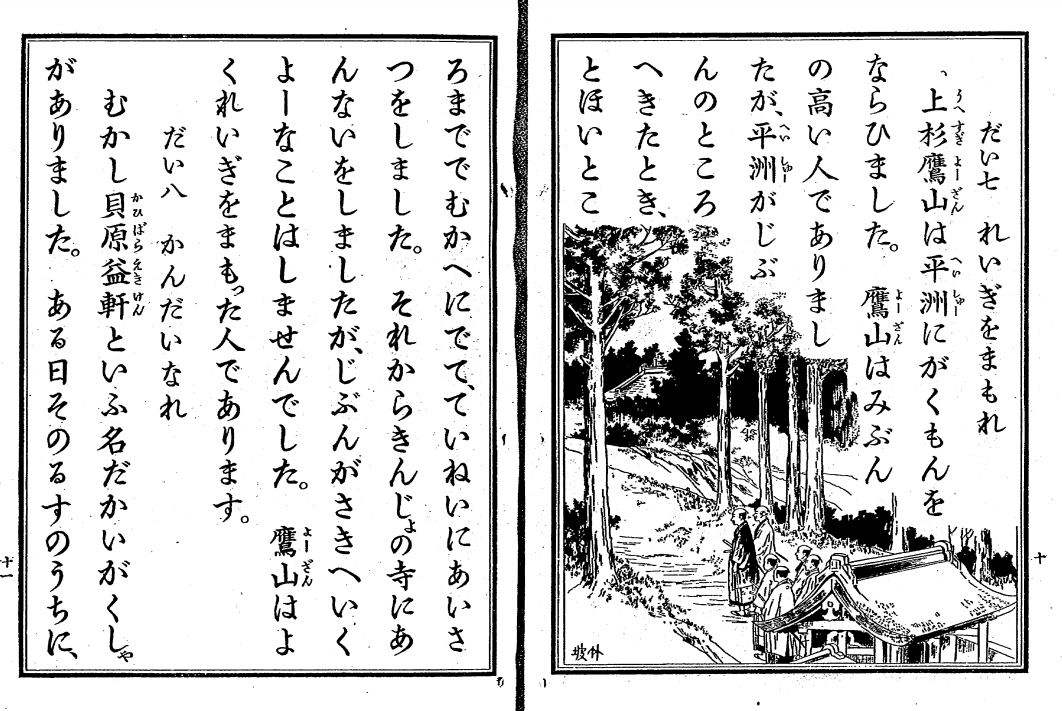 だい七 れいぎをまもれ
上杉鷹山は平洲にがくもんを
ならひました。 鷹山はみぶん
の高い人でありまし
たが、平洲がじぶ
んのところ
へきたとき、
とほいとこ
ろまででむかへにでて、ていねいにあいさ
つをしました。 それからきんじよの寺にあ
んないをしましたが、じぶんがさきへいく
よーなことはしませんでした。 鷹山はよ
くれいぎをまもつた人であります。
だい八 かんだいなれ
むかし貝原益軒といふ名だかいがくしや
がありました。 ある日そのるすのうちに、
十
十一